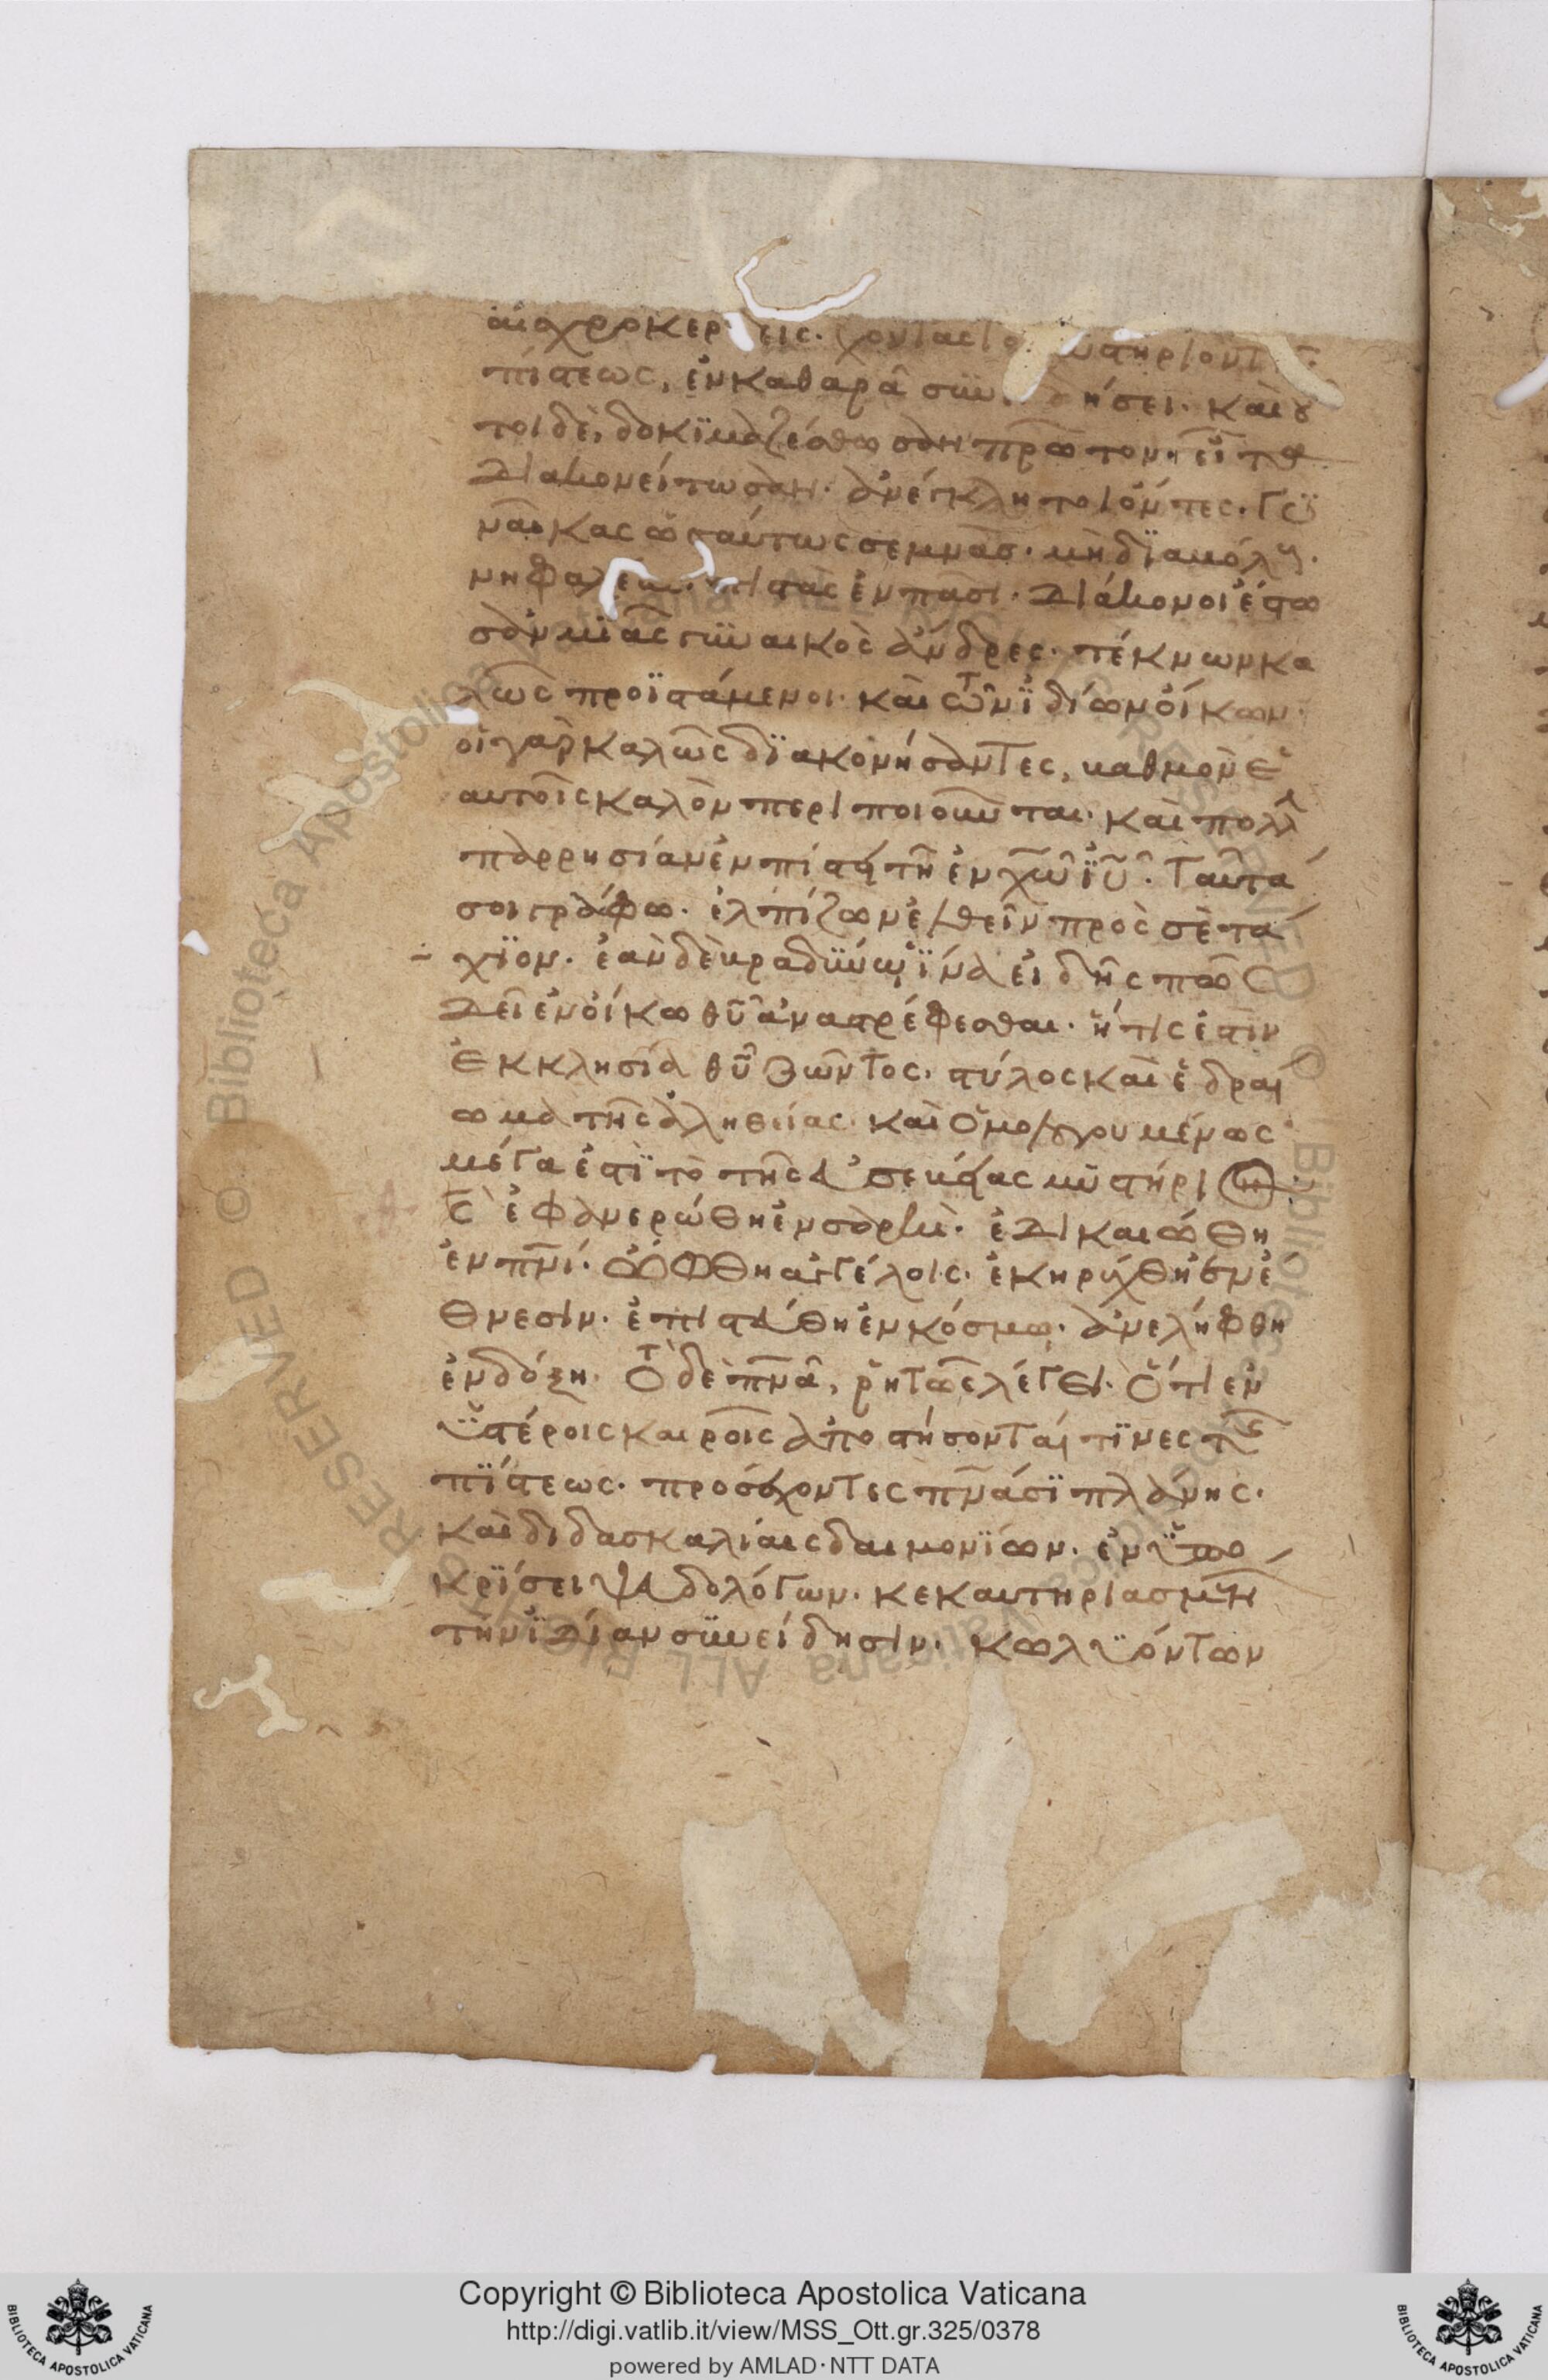 αἰσχροκερ εις. χοντας το υστήριον τῆς
πίστεως, ἐν καθαρᾶ συν δήσει. καὶ οὗ
τοι δὲ, δοκϊμαζέσθωσαν πρῶτον· εἶτα
διακονείτωσαν. ἀνέγκλητοι ὄντες. Γυ
ναῖκας ὡσαύτως σεμνὰς. μὴ δϊαβόλους.
νηφαλέους. πιστὰς ἐν πᾶσι. διάκονοι ἔστω
σαν μϊᾶς γυναικὸς ἄνδρες. τέκνων κα
λῶς προϊστάμενοι. καὶ τῶν ϊδίων οἴκων.
οἱ γὰρ καλῶς δϊακονήσαντες, βαθμὸν ἑ
αυτοῖς καλὸν περιποιοῦνται. καὶ πολλὴν
παρρησίαν ἐν πίστει τῆ ἐν χ̅ω̅ ϊ̅υ̅. Ταῦτά
σοι γράφω. ἐλπίζων ἐλθεῖν πρὸς σὲ τά
χϊον. ἐὰν δὲ βραδύνω, ἵνα εἰδῆς πῶς
δεῖ ἐν οἴκω θ̅υ̅ ἀναστρέφεσθαι. ἥτις ἐστὶν
ἐκκλησία θ̅υ̅ ζῶντος. στύλος καὶ ἑδραί
ωμα τῆς ἀληθείας. καὶ ὁμολογουμένως
μέγα ἐστϊ τὸ τῆς εὐσεβείας μυστήριον.
θ̅ς̅ ἐφανερώθη ἐν σαρκὶ. ἐδικαιώθη
ἐν π̅ν̅ι̅. ὤφθη ἀγγέλοις. ἐκηρύχθη ἐν ἔ
θνεσιν. ἐπιστεύθη ἐν κόσμω. ἀνελήφθη
ἐν δόξη. Τὸ δὲ π̅ν̅α̅, ῥητῶς λέγει. ὅτι ἐν
ὑστέροις καιροῖς ἀποστήσονταί τϊνες τῆς
πϊστεως. προσέχοντες π̅ν̅άσϊ πλάνης.
καὶ διδασκαλίαις δαιμονϊων. ἐν ὑπο
κρϊσει ψευδολόγων. κεκαυτηριασμένων
τὴν ϊδίαν συνείδησιν. κωλυόντων
Copyright © Biblioteca Apostolica Vaticana
http://digi.vatlib.it/view/MSS_Ott.gr.325/0378
powered by AMLAD·NTT DATA